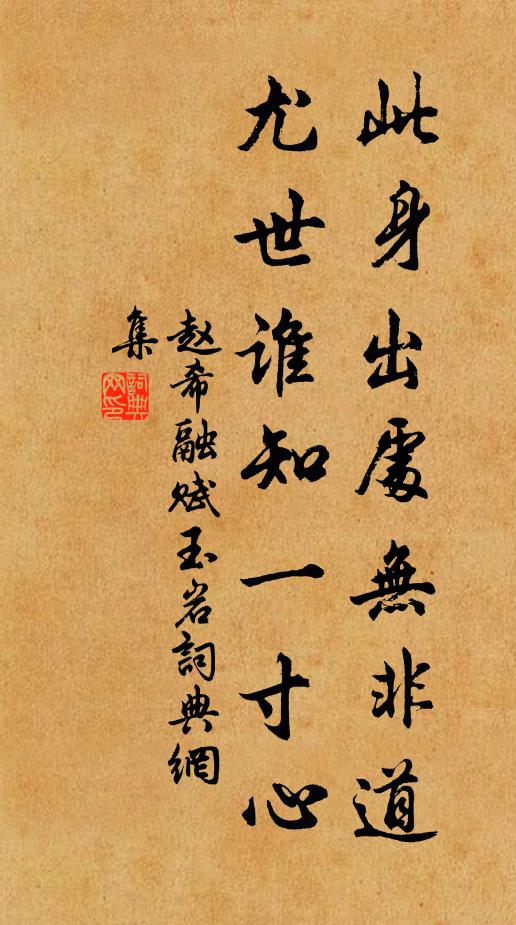 此身出處無非道
尤世誰知一寸心
赵希融赋玉岩詞典網
集
詞典网印